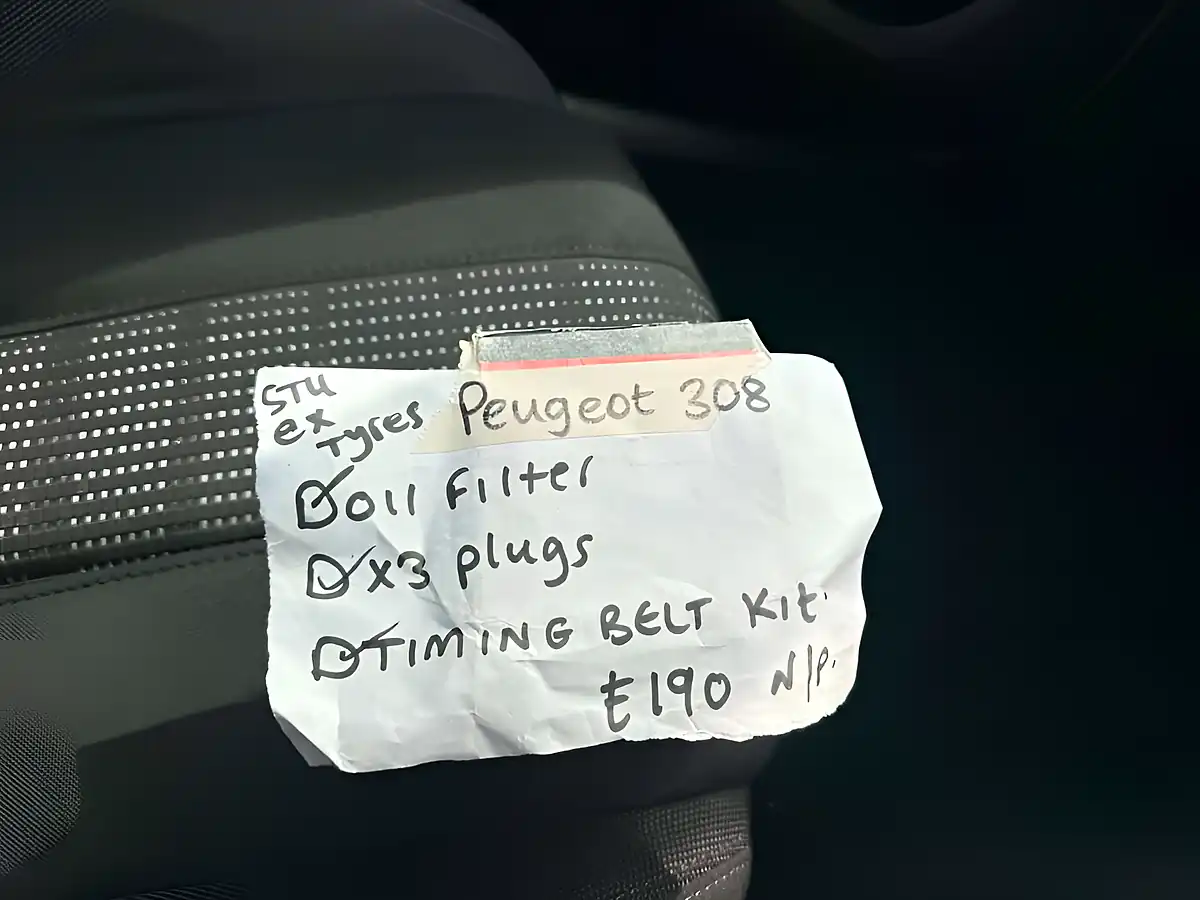 STU
ex
Tyres
Peugeot 308
oil Filter
x3 plugs
TIMING BELT Kit.
£190 N/P.